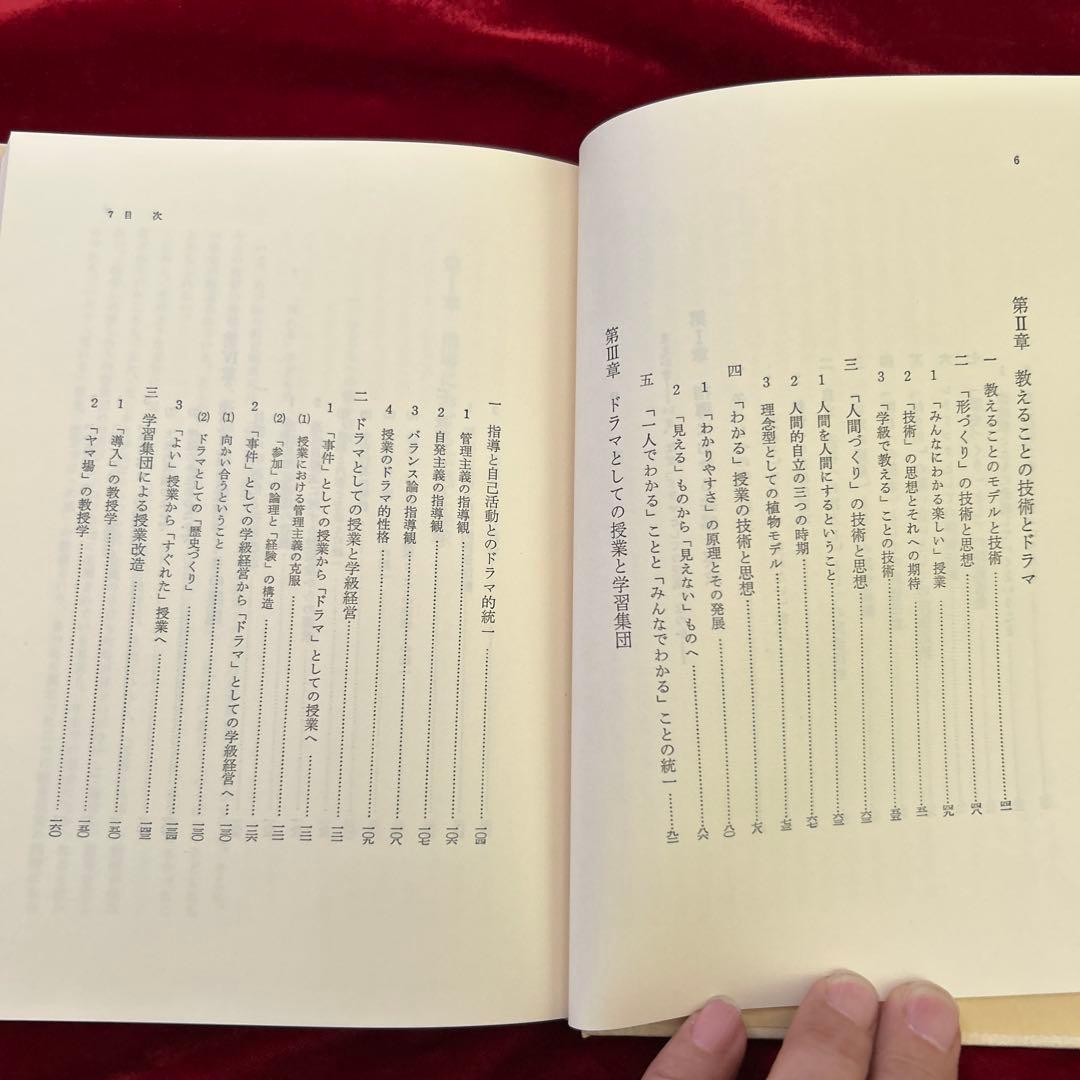 6
第Ⅱ章 教えることの技術とドラマ
一 教えることのモデルと技術……四一
二 「形づくり」の技術と思想……四八
1 「みんなにわかる楽しい」授業……四九
2 「技術」の思想とそれへの期待……
3 「学級で教える」ことの技術……
三 「人間づくり」の技術と思想……六三
1 人間を人間にするということ……六三
2 人間的自立の三つの時期……六七
3 理念型としての植物モデル……七三
四 「わかる」授業の技術と思想……七八
1 「わかりやすさ」の原理とその発展……八〇
2 「見える」ものから「見えない」ものへ……八六
五 「一人でわかる」ことと「みんなでわかる」ことの統一……
第Ⅲ章 ドラマとしての授業と学習集団
7 目 次
一 指導と自己活動とのドラマ的統一……一〇四
1 管理主義の指導観……一〇六
2 自発主義の指導観……一〇七
3 バランス論の指導観……一〇八
4 授業のドラマ的性格……一〇九
二 ドラマとしての授業と学級経営……
1 「事件」としての授業から「ドラマ」としての授業へ……
(1) 授業における管理主義の克服……
(2) 「参加」の論理と「経験」の構造……
2 「事件」としての学級経営から「ドラマ」としての学級経営へ……一三〇
(1) 向かい合うということ……一三〇
(2) ドラマとしての「歴史づくり」……一三四
3 「よい」授業から「すぐれた」授業へ……一四三
三 学習集団による授業改造……一五〇
1 「導入」の教授学……一五〇
2 「ヤマ場」の教授学……一六〇